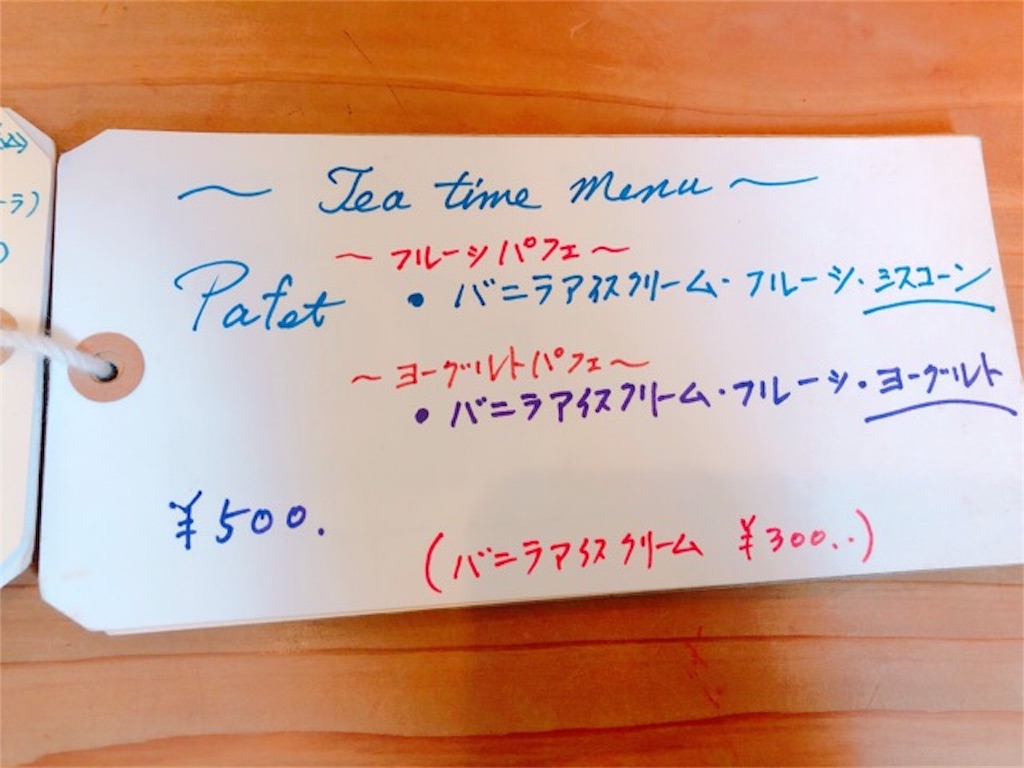 ～ Tea time menu ～
Pafet
～ フルーツパフェ ～
• バニラアイスクリーム・フルーツ・ミスコーン
～ ヨーグルトパフェ ～
• バニラアイスクリーム・フルーツ・ヨーグルト
¥500.
(バニラアイスクリーム ¥300..)
ーラ)